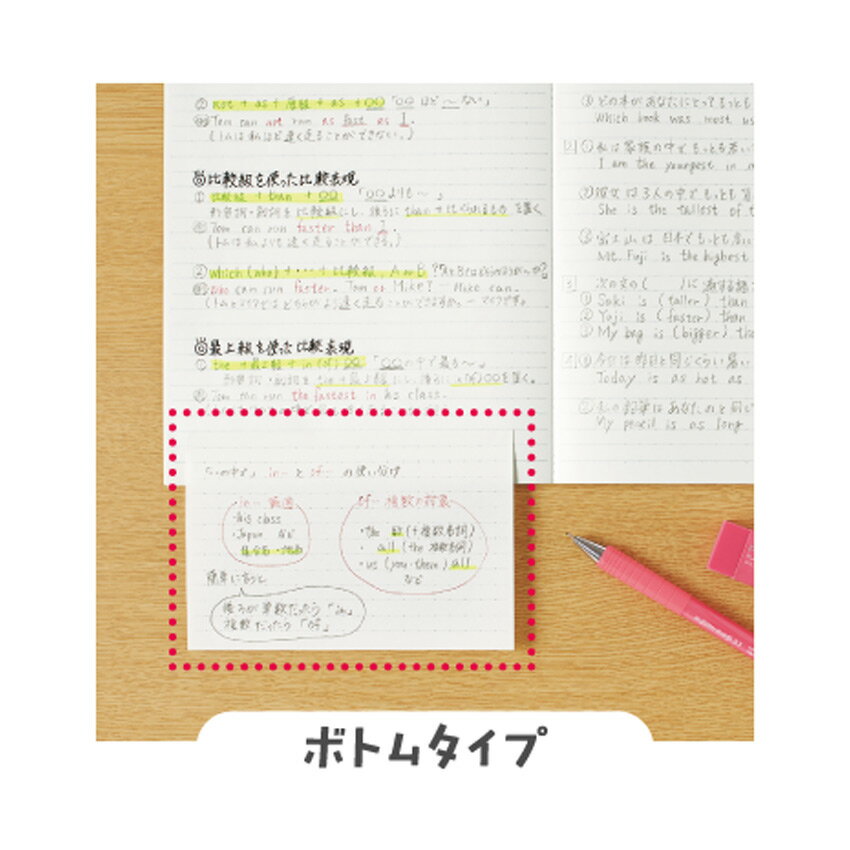 ② not + as + 原級 + as + ○○ 「○○ ほど 〜 ない」
例 Tom can not run as fast as I.
(トムは私ほど速く走ることができない。)
◎比較級を使った比較表現
① 比較級 + than + ○○ 「○○よりも〜」
形容詞・副詞を比較級にし、後ろに than + を置く
例 Tom can run faster than I.
(トムは私よりも速く走ることができる。)
② which (who) + … + 比較級, A or B ?
例 Who can run faster, Tom or Mike? Mike can.
◎最上級を使った比較表現
① the + 最上級 + in (of) ○○ 「○○の中で最も〜」
形容詞・副詞を the + 最上級にし、後ろに in(of)○○を置く。
the fastest in his class.
③ どの本があなたにとってもっとも
Which book was most us
2 ① 私は家族の中でもっとも若い
I am the youngest in m
② 彼女は3人の中でもっとも
She is the tallest of t
③ 富士山は日本でもっとも高い
Mt. Fuji is the highest
3 次の文の( )に適する語
① Saki is (taller) than
② Yuji is (faster) than
③ My bag is (bigger) tha
4 ① 今日は昨日と同じくらい暑い
Today is as hot as
② 私の鉛筆はあなたのと同じ
My pencil is as long
「〜の中で」 in… と of… の使い分け
in… 範囲
・his class
・Japan など
of… 複数の
・the 数(+複数名詞)
・all (the 複数名詞)
・us (you・them) all
など
簡単に言うと
後ろが単数だったら「in」
複数だったら「of」
ボトムタイプ